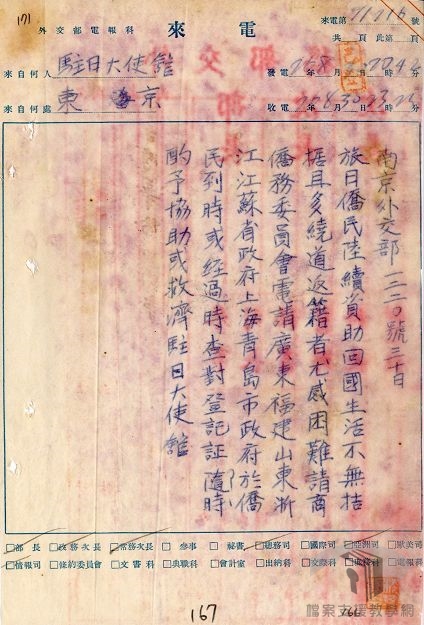 171
外交部電報科
來電
來電第 71716 號
共 頁 此第 頁
來自何人 駐日大使館
來自何處 東京
發電 年 月 日 時 分
收電 年 月 日 時 分
南京外交部一二二〇號三十日
旅日僑民陸續資助回國生活不無拮
据且多繞道返籍者尤感困難請商
僑務委員會電請廣東福建山東浙
江江蘇省政府上海青島市政府於僑
民到時或經過時查對登記証隨時
酌予協助或救濟駐日大使館
□部長 □政務次長 □常務次長 □參事 □秘書 □總務司 □國際司 □亞洲司 □歐美司
□情報司 □條約委員會 □文書科 □典職科 □會計室 □出納科 □交際科 □庶務科 □電報科
167
檔案支援教學網